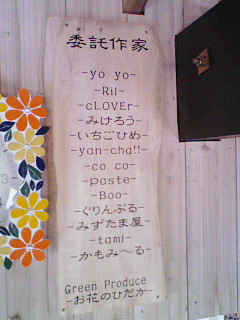 委託作家
-yo yo-
-Ril-
-cLOVEr-
-みけろう-
-いちごひめ-
-yan-cha!!-
-co co-
-paste-
-Boo-
-ぐりんぷる-
-みずたま屋-
-tami-
-かもみ〜る-
Green Produce
-お花のひだか-